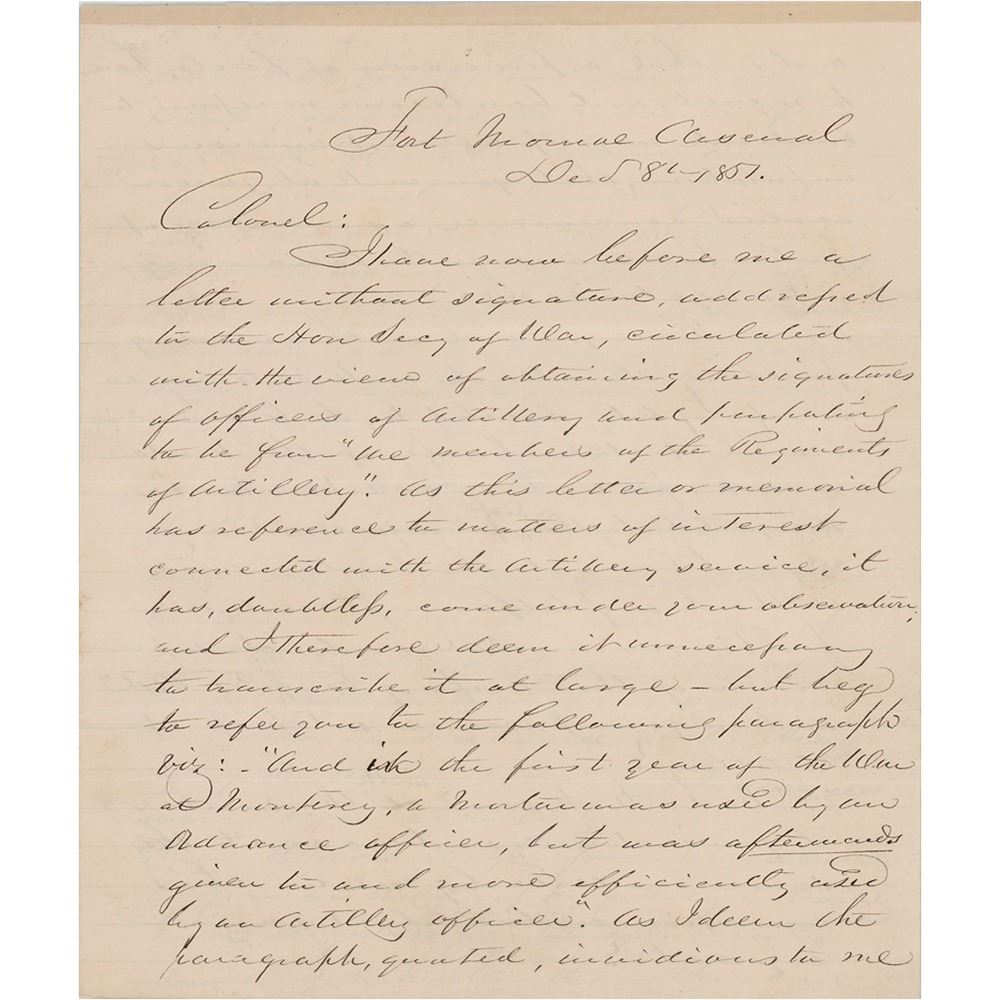 Fort Monroe Arsenal
Dec 8th 1851.
Colonel:
I have now before me a
letter without signature, addressed
to the Hon Secy of War, circulated
with the view of obtaining the signatures
of officers of Artillery and purpoting
to be from "the members of the Regiments
of Artillery". As this letter or memorial
has reference to matters of interest
connected with the Artillery service, it
has, doubtless, come under your observation,
and I therefore deem it unnecessary
to transcribe it at large - but beg
to refer you to the following paragraph
viz: - "And in the first year of the War
at Monterey, a Mortar was used by an
Ordnance officer, but was afterwards
given to and more efficiently used
by an Artillery officer". As I deem the
paragraph, quoted, invidious to me